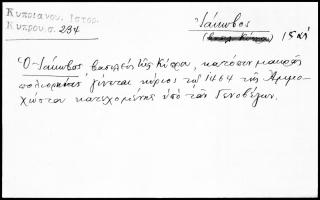 Κυπριανου. Ιστορ.
Κυπρου σ. 234
Ἰάκωβος
Ὁ Ἰάκωβος βασιλεὺς τῆς Κύπρου, κατόπιν μακρᾶς
πολιορκίας γίνεται κύριος τῷ 1464 τῆς Ἀμμο-
χώστου κατεχομένης ὑπὸ τῶν Γενοβέζων.